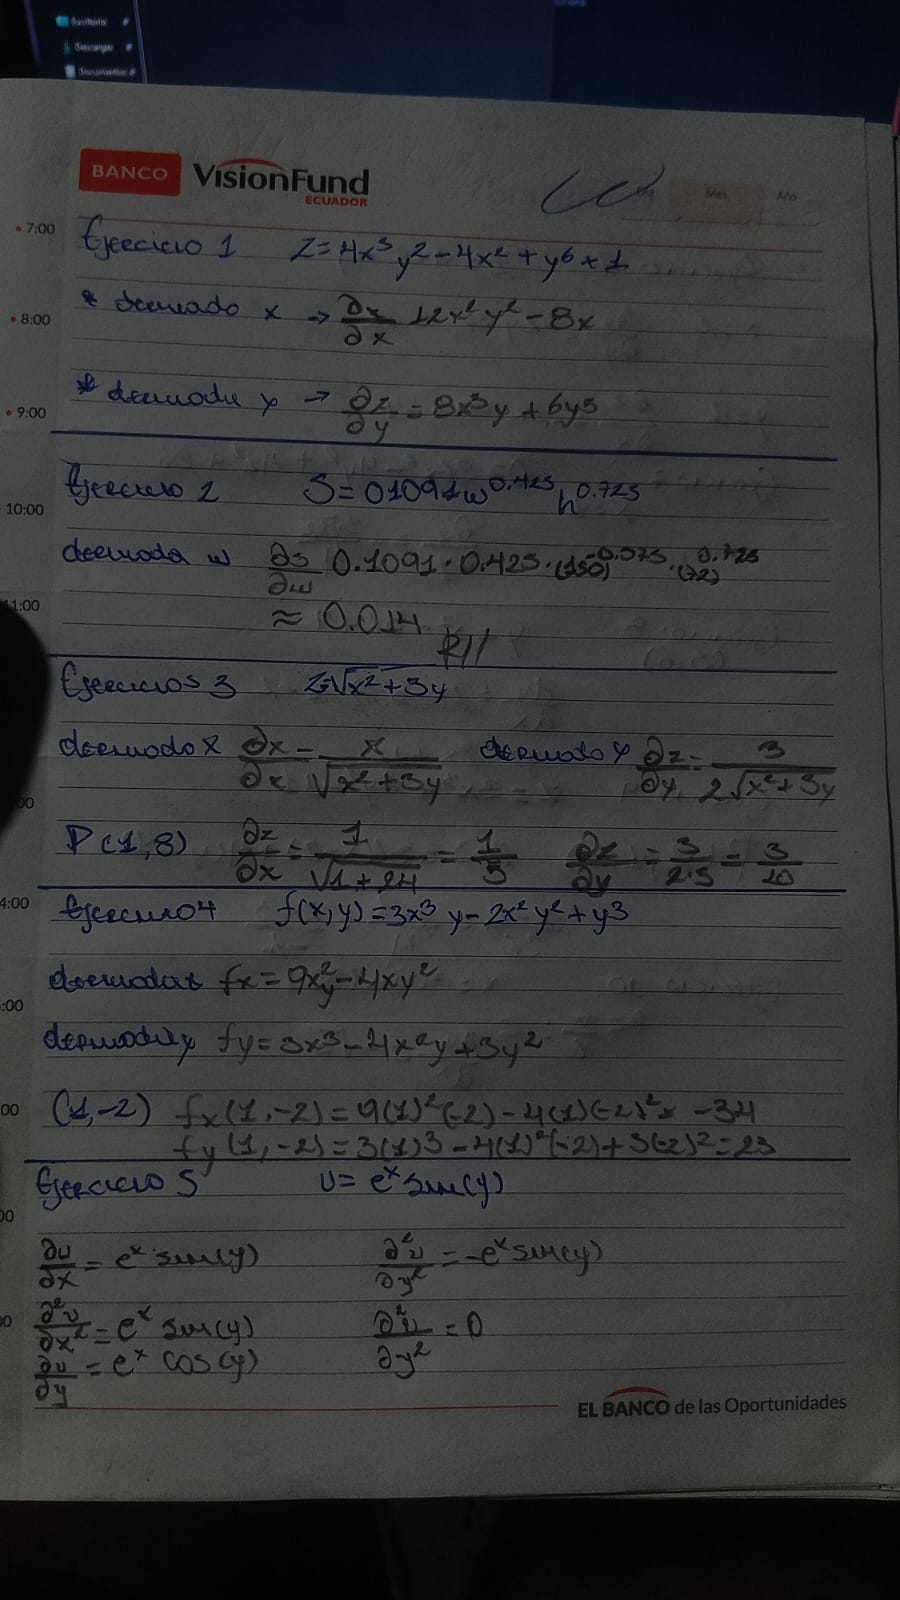 Escritorio
Descargas
Documentos
BANCO VisionFund
ECUADOR
Mes Año
7:00
Ejercicio 1 Z=4x³y²-4x²+y⁶+1
* derivado x → ∂x/∂x 12x²y²-8x
8:00
* derivada y → ∂z/∂y = 8x³y+6y5
9:00
Ejercicio 2 S=01091w^0.425 h^0.725
10:00
derivada w ∂s/∂w 0.1091·0.425·(150)^-0.575·(72)^0.725
11:00
≈ 0.014 R//
Ejercicios 3 z=√x²+3y
derivado x ∂x/∂x = x/√x²+3y derivado y ∂z/∂y = 3/2√x²+3y
:00
P(1,8) ∂z/∂x = 1/√1+24 = 1/5 ∂z/∂y = 3/2.5 = 3/10
4:00
Ejercicio 4 f(x,y)=3x³y-2x²y²+y3
derivada x fx=9x²y-4xy²
:00
derivada y fy=3x³-4x²y+3y²
00
(1,-2) fx(1,-2)=9(1)²(-2)-4(1)(-2)²= -34
fy(1,-2)=3(1)3-4(1)²(-2)+3(-2)²=23
Ejercicio 5 U= eˣ sen(y)
00
∂u/∂x = eˣ sen(y) ∂²u/∂y² = -eˣ sen(y)
00
∂²u/∂x² = eˣ sen(y) ∂²u/∂y² = 0
∂u/∂y = eˣ cos(y)
EL BANCO de las Oportunidades